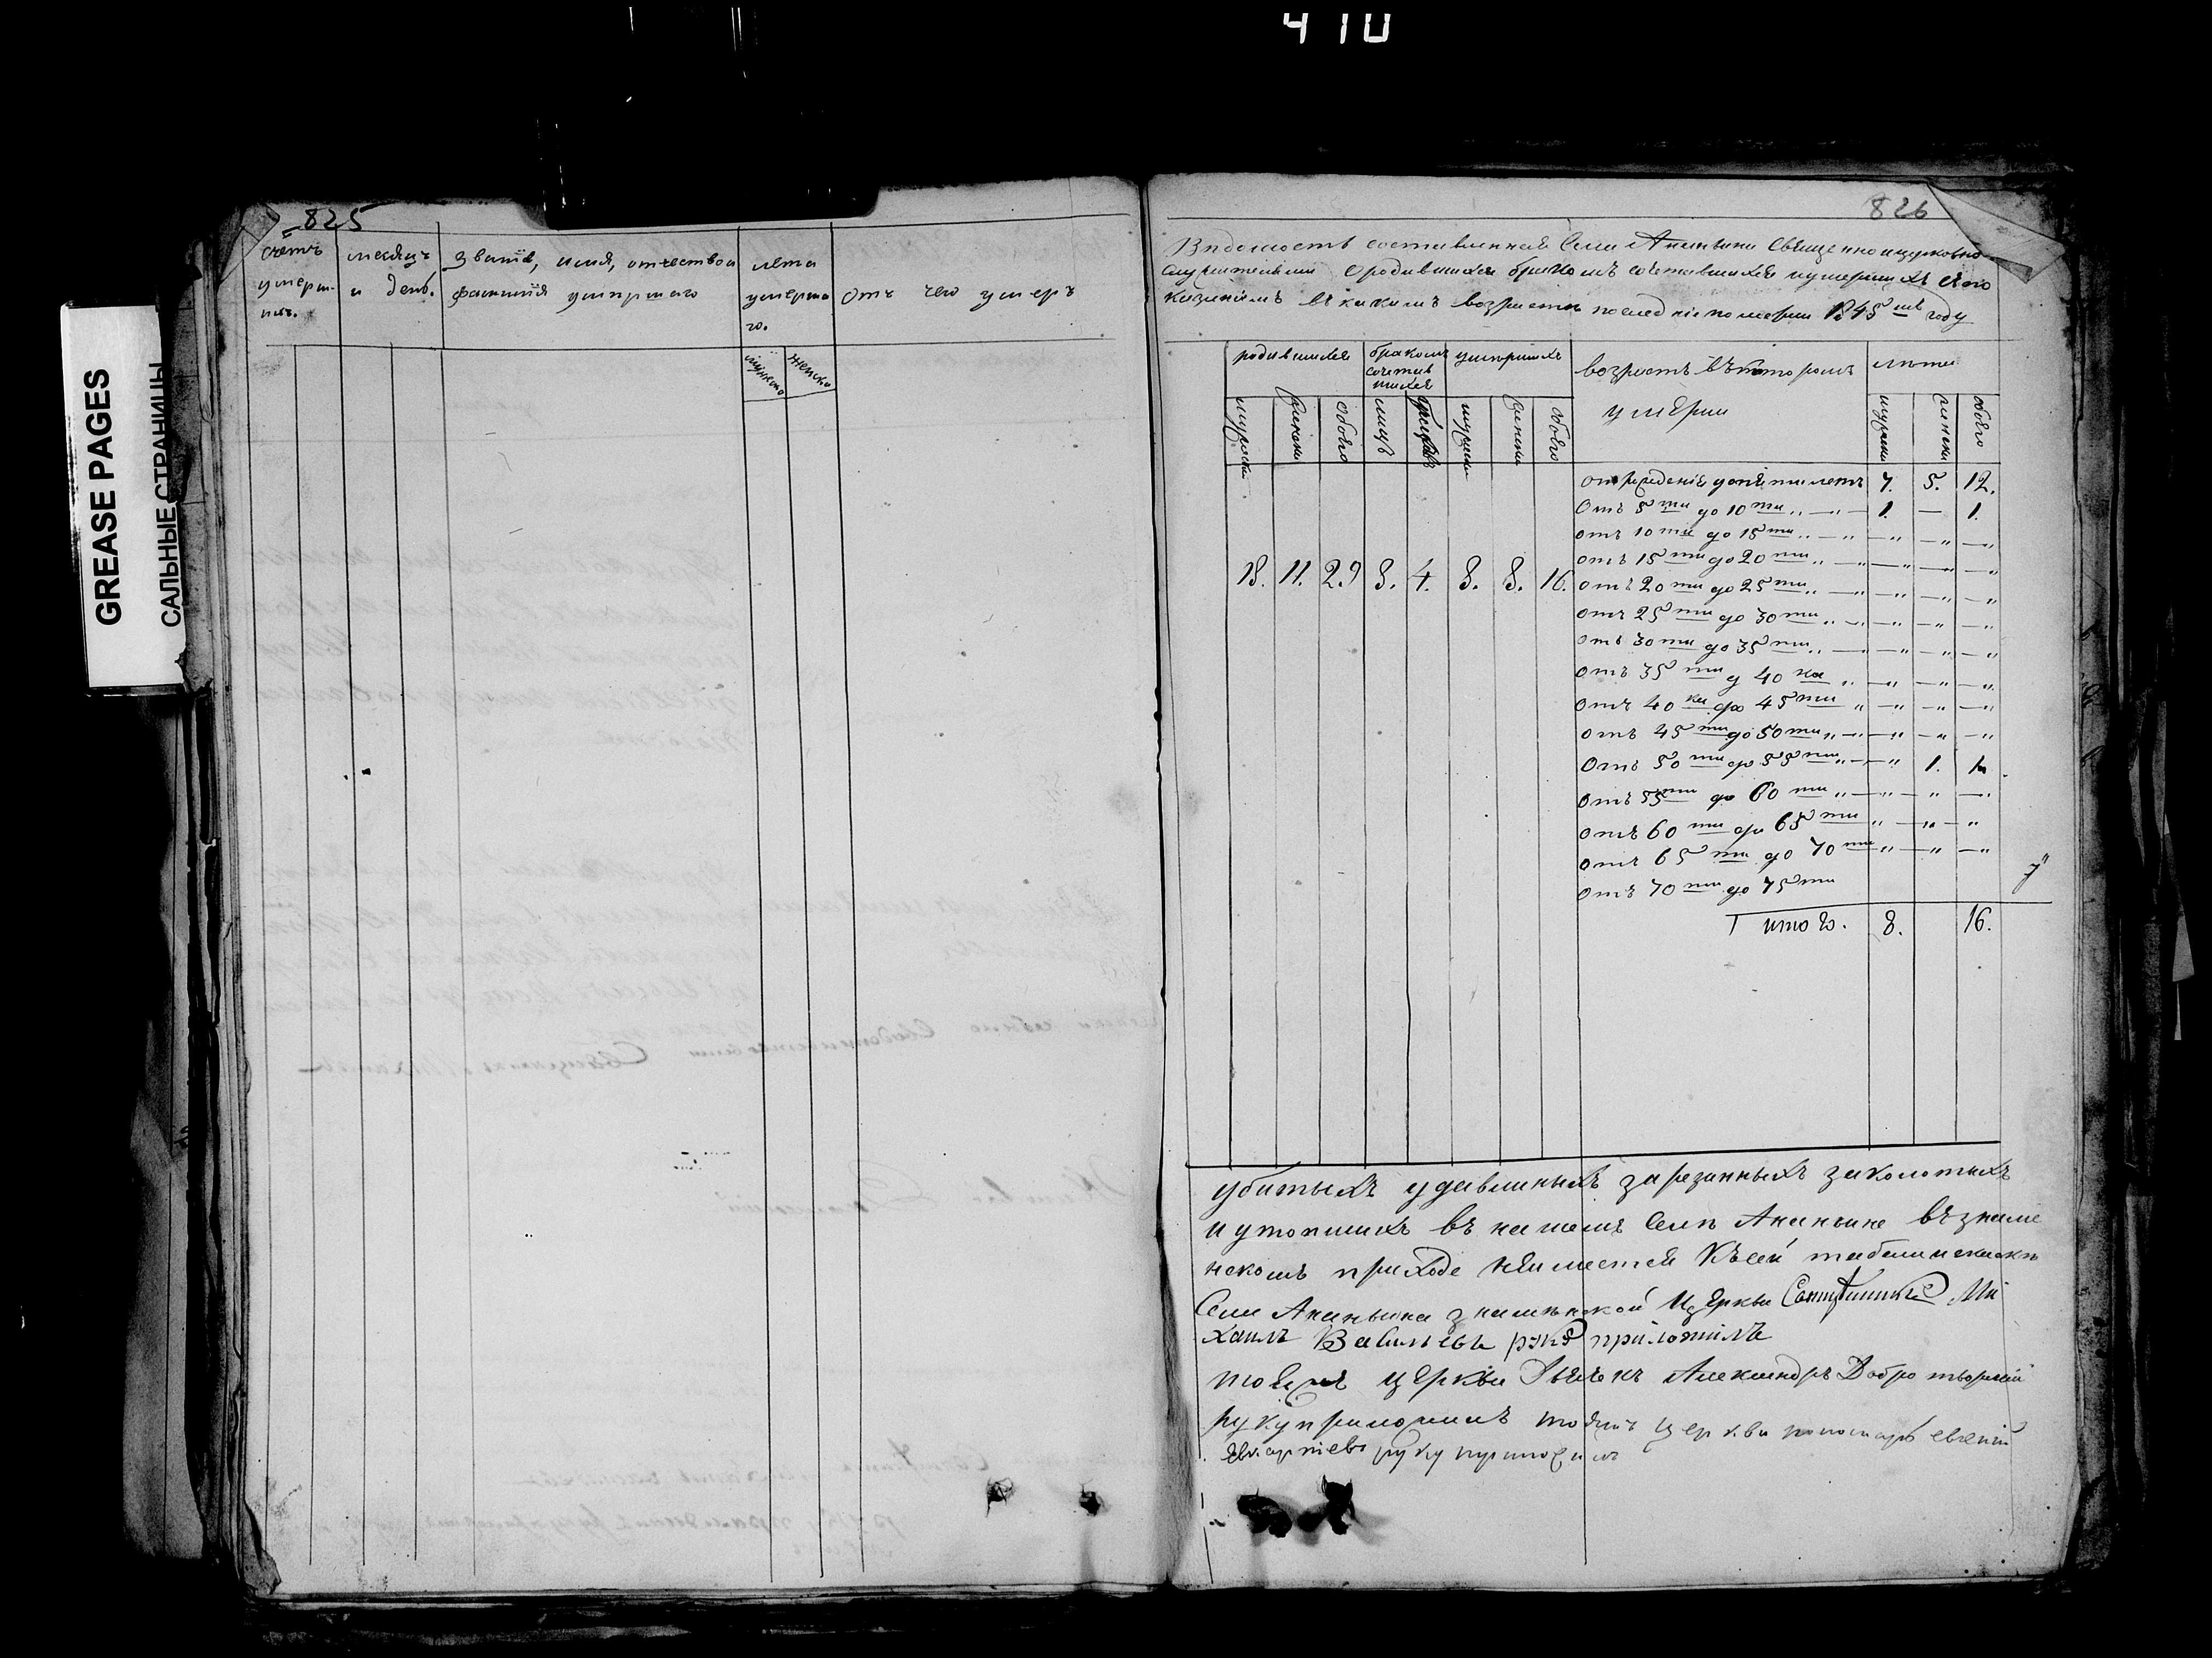 410
GREASE PAGES
САЛЬНЫЕ СТРАНИЦЫ
825
счетъ умерш-ихъ.
месяцъ и день.
званіе, имя, отчество и фамилія умершаго
лета умерша го.
мужеско
женско
отъ чего умеръ
826
Ведомость составленная Села Ананьина Священноцерковно
служительми о родившихся бракомъ сочетавшихся и умершихъ съ по
казаніемъ въ какомъ возрасте последніе померли 1845 мъ году
родившихся
бракомъ сочетав шихся
умершихъ
возрастъ въ котором умерли
лета
мужеска
женска
обоего
мужеска
женска
обоего
мужеска
женска
обоего
18. 11. 29 8. 4. 8. 8. 16.
от рожденія до пяти летъ 7. 5. 12.
Отъ 5 ти до 10 ти „ — „ — 1. — 1.
отъ 10 ти до 15 ти „ — „ — „ — „ — „
отъ 15 ти до 20 ти „ — „ — „ — „ — „
отъ 20 ти до 25 ти „ — „ — „ — „ — „
отъ 25 ти до 30 ти „ — „ — „ — „ — „
отъ 30 ти до 35 ти „ — „ — „ — „ — „
отъ 35 ти д 40 ка „ — „ — „ — „
отъ 40 ка до 45 ти „ — „ — „ — „
отъ 45 ти до 50 ти „ — „ — „ — „ — „
Отъ 50 ти до 55 ти „ — „ 1. 1.
отъ 55 ти до 60 ти „ — „ — „ — „
отъ 60 ти до 65 ти „ — „ — „
отъ 65 ти до 70 ти „ — „ — „
отъ 70 ти до 75 ти
итого. 8. 16.
убитыхъ удавленыхъ зарезанныхъ заколотыхъ
и утопшихъ въ нашемъ Селе Ананьине въ знаме
нскомъ приходе неимеется Къ сей табели
Села Ананьина знаменской Церкви Священникъ Ми
хаилъ Васильевъ руку приложилъ
тоя жъ церкви Дьячекъ Александръ Добротворскій
руку приложилъ тоя жъ церкви пономарь евгеній
руку приложилъ